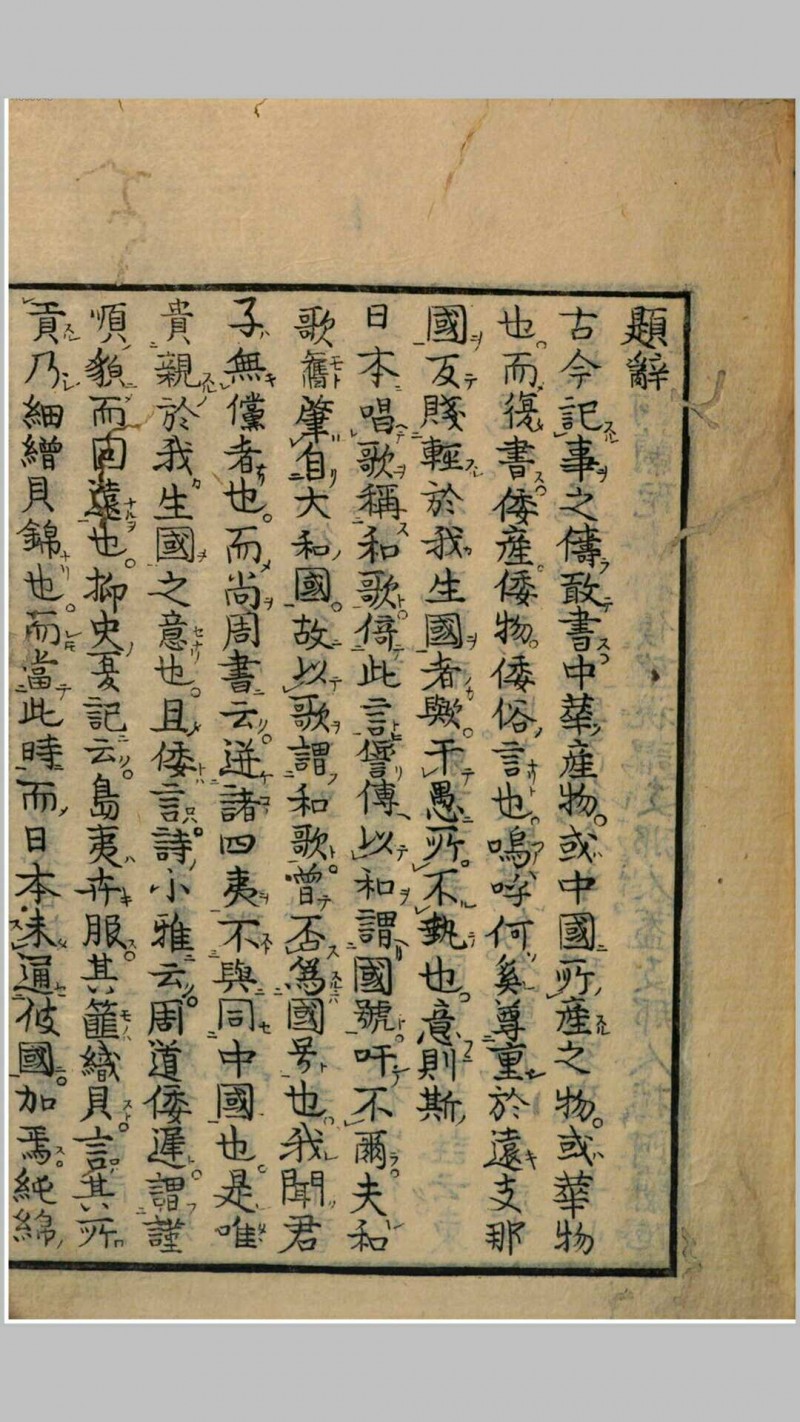 題辭
古今記事之儔敢書中華產物。或中國所產之物。或華物
也。而復書倭產。倭物。倭俗言也。嗚呼何奚尊重於遠支那
國反賤輕於我生國者歟。予愚所不執也。意則斯
日本唱歌稱和歌。倚此言傳以和謂國號。吁不爾。夫和
歌舊肇自大和國。故以歌謂和歌。曾否爲國号也。我聞君
子無儻者也。而尚周書云。迸諸四夷不與同中國也。是唯
貴親於我生國之意也。且倭言。詩小雅云。周道倭遲。謂謹
順貌而回遠也。抑史夏記云。島夷卉服。其篚織貝。言其所
貢乃細繒貝錦也。而當此時而日本未通彼國。加焉純綿